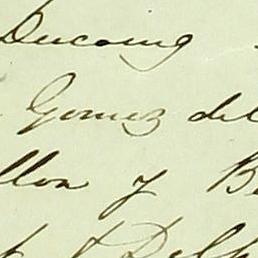 Ducoing
Gomez del
llon y B